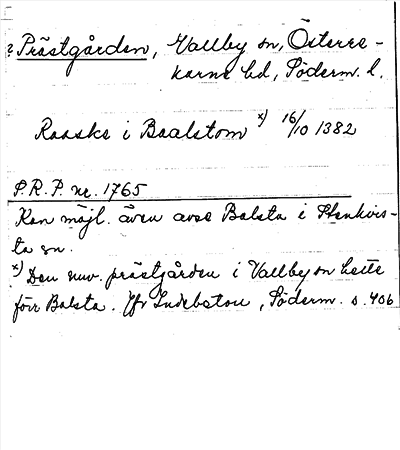 ? Prästgården, Vallby sn, Österre-
karne hd, Söderm. l.
Raaske i Baalstom x) 16/10 1382
S.R.P. nr. 1765
Kan möjl. även avse Balsta i Stenkvis-
ta sn.
x) Den nuv. prästgården i Vallby sn hette
förr Balsta. Jfr Lindebstou, Söderm. s. 406